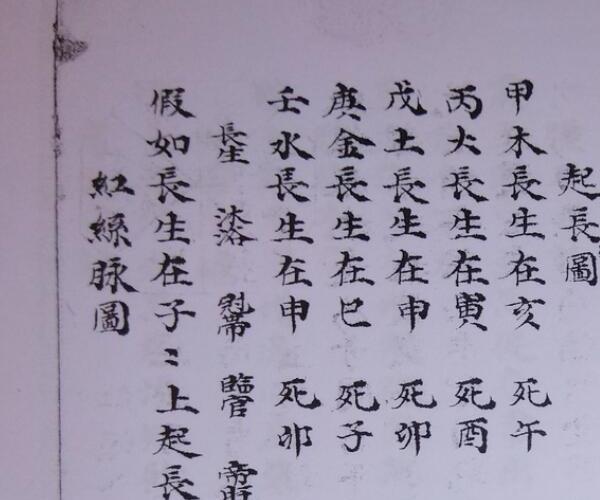 起長圖
甲木長生在亥 死午
丙火長生在寅 死酉
戊土長生在申 死卯
庚金長生在巳 死子
壬水長生在申 死卯
長生 沐浴 冠帶 臨官 帝旺
假如長生在子〻上起長
紅絲脉圖